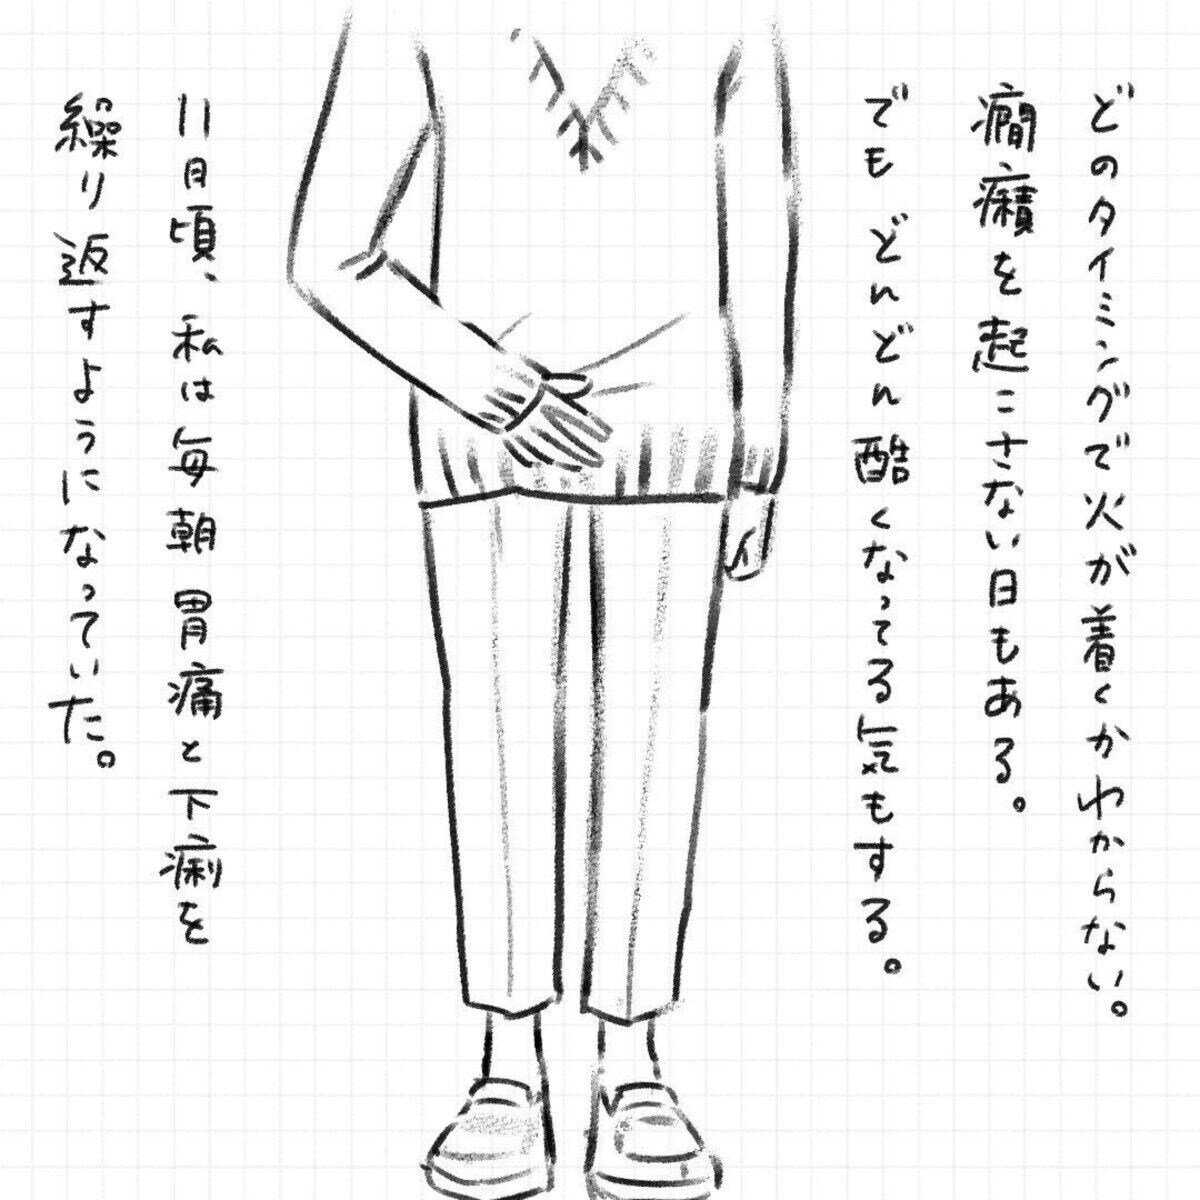 どのタイミングで火が着くかわからない。
癇癪を起こさない日もある。
でもどんどん酷くなってる気もする。
11月頃、私は毎朝胃痛と下痢を
繰り返すようになっていた。